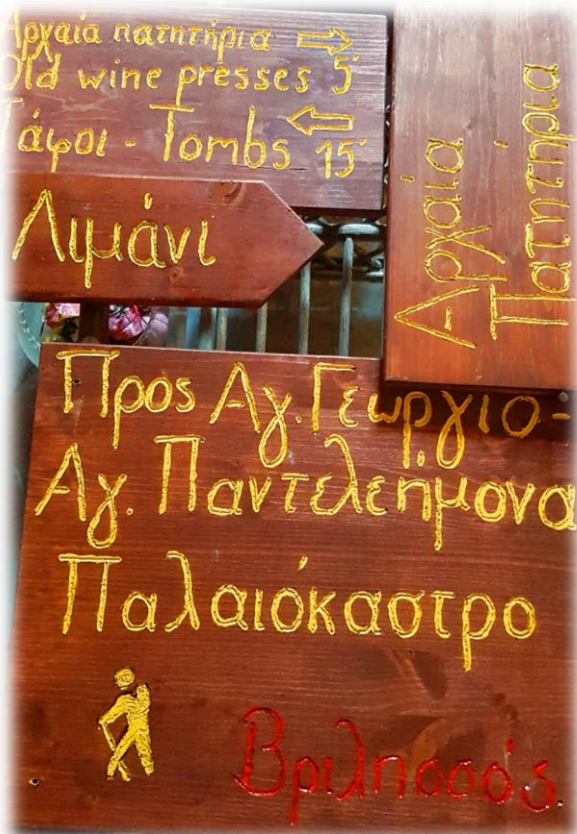 Αρχαία πατητήρια
Old wine presses 5'
Τάφοι - Tombs 15'
Λιμάνι
Αρχαία
Πατητήρια
Προς Αγ. Γεωργιο-
Αγ. Παντελεήμονα
Παλαιόκαστρο
Βριλησσός